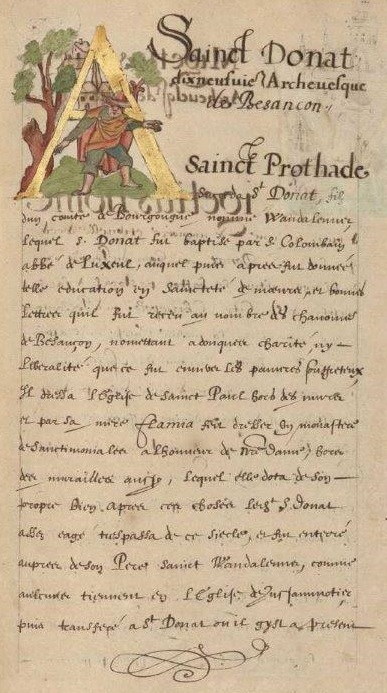 Sainct Donat
dixneufuie Archeuesque
de Besancon
A Sainct Prothade
St Donat, filz
dun comte de Bourgougne nomme Wandalenus,
lequel S. Donat fut baptise par S. Colomban
abbé de Luxeul, auquel puis apres fut donnee
telle education en saincteté de moeurs, et bonnes
lettres quil fut receu au nombre des chanoines
de Besançon, nomettant adonques charite ny
liberalité que ce fut enuers les pauures souffreteux
Il dressa l'Eglise de Sainct Paul hors des murs
et par sa mere Flamia feit dresser un monastere
de Sanctimoniales a lhonneur de nre dame hors
des murailles aussy, lequel elle dota de son
propre bien, apres ces choses ledit S. Donat
assez eagé trespassa de ce siecle, et fut enterré
aupres de son Pere Sainct Wandalenus, comme
aulcuns tiennent en l'Eglise de
puis transferé a St Donat ou il gyst a present